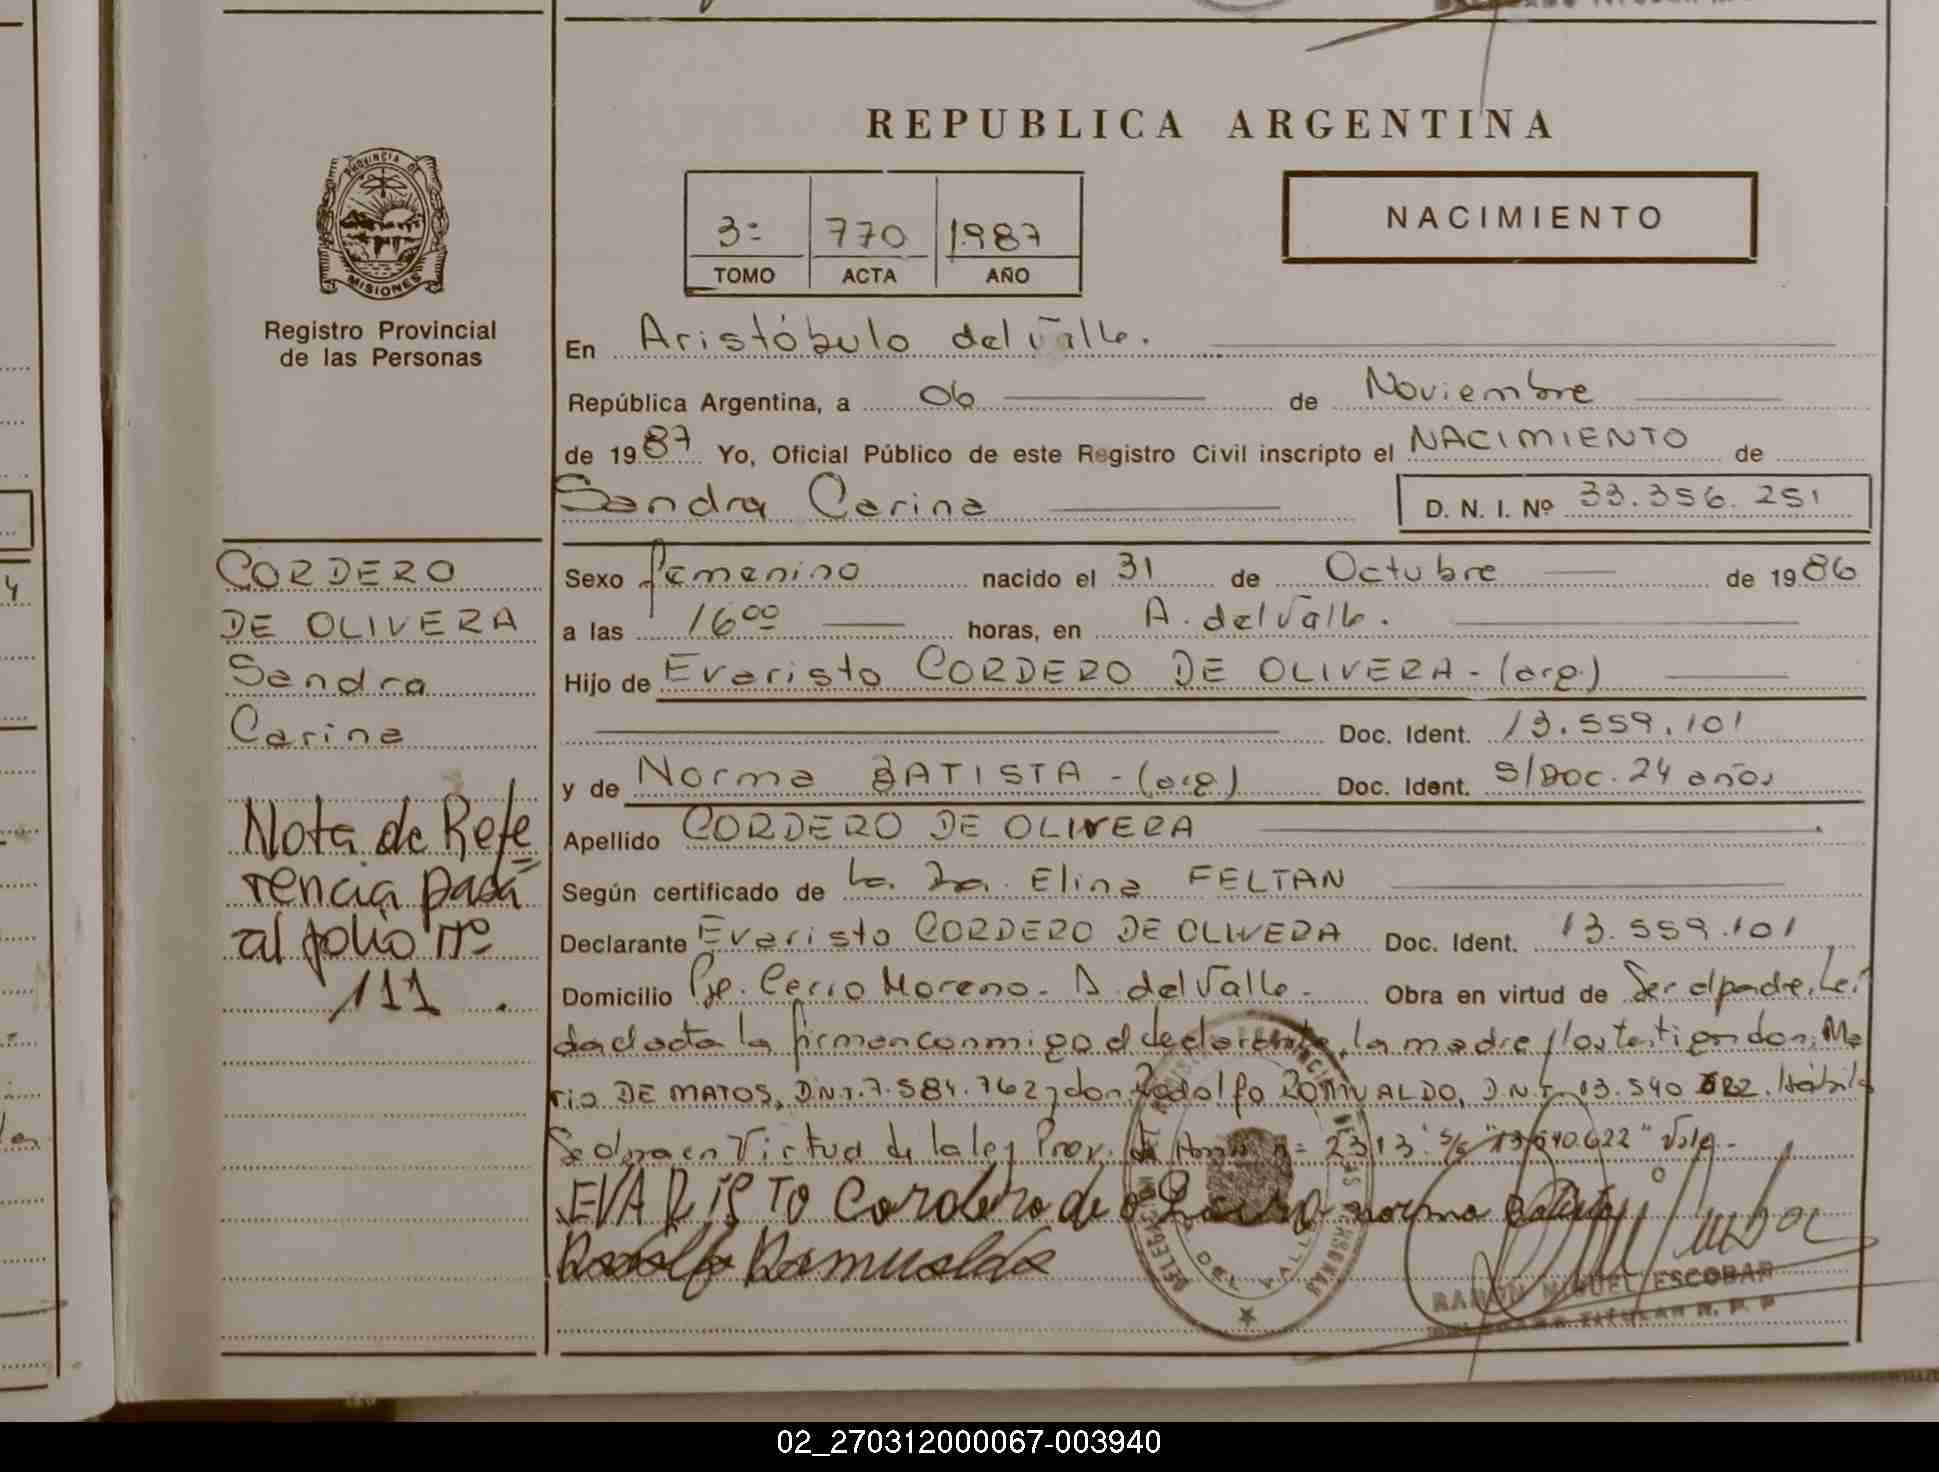 REPUBLICA ARGENTINA
PROVINCIA DE
MISIONES
Registro Provincial
de las Personas
3= 770 1.987
TOMO ACTA AÑO
NACIMIENTO
En Aristóbulo del Valle.
República Argentina, a 06 de Noviembre
de 1987 Yo, Oficial Público de este Registro Civil inscripto el NACIMIENTO de
Sandra Carina D. N. I. Nº 33.356.251
CORDERO
DE OLIVERA
Sandra
Carina
Nota de Refe
rencia pasa
al folio nº
111.
Sexo femenino nacido el 31 de Octubre de 1986
a las 16oo horas, en A. del Valle.
Hijo de Evaristo CORDERO DE OLIVERA - (arg.)
Doc. Ident. 13.559.101
y de Norma BATISTA - (arg) Doc. Ident. S/Doc. 24 años
Apellido CORDERO DE OLIVERA
Según certificado de la Dra. Elina FELTAN
Declarante Evaristo CORDERO DE OLIVERA Doc. Ident. 13.559.101
Domicilio Pje. Cerro Moreno - A. del Valle - Obra en virtud de Ser el padre. Leí
da el acta la firman conmigo el declarante, la madre y los testigos don: Ma
rio DE MATOS, D.N.I. 7.584.762 y don Rodolfo ROMUALDO, D.N.I. 13.540 Hábil
Se obra en Virtud de la ley Prov. de n= 2313. s/r "13.540.622" Vale.-
EVARISTO Cordero de norma
Rodolfo Romualdo
RAMON MIGUEL ESCOBAR
TITULAR R. P. P
02_270312000067-003940